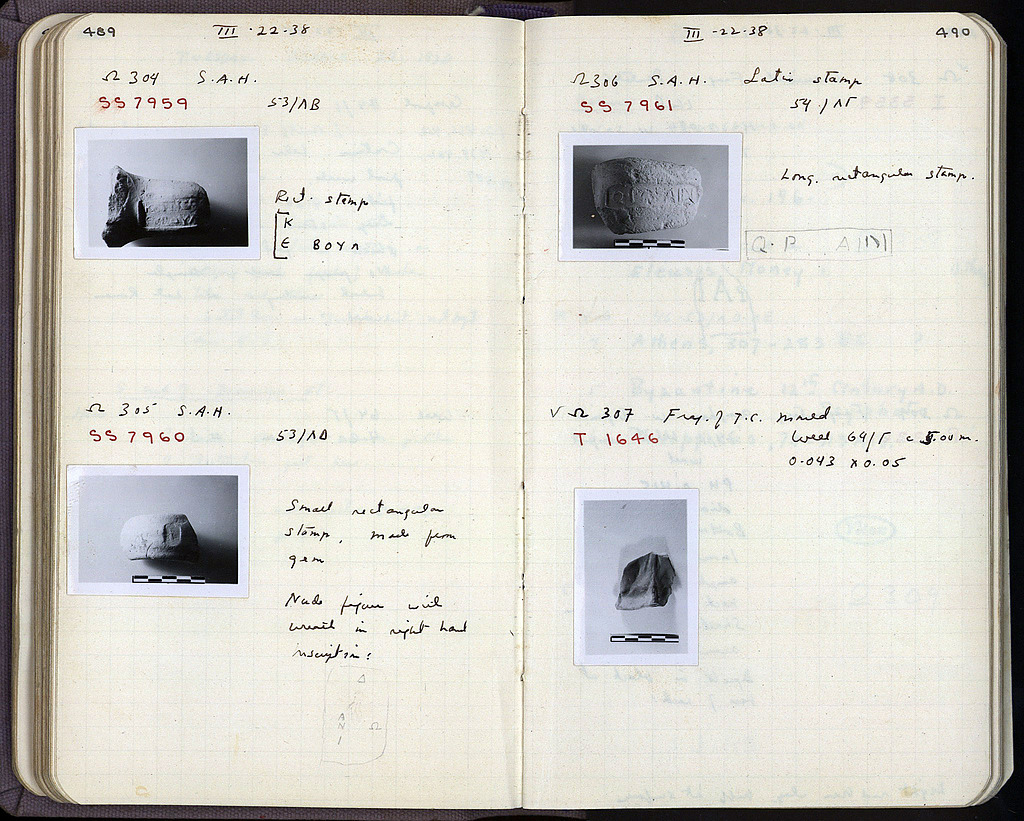 489
III · 22 · 38
Ω 304 S.A.H.
SS 7959 53/ΛΒ
Rect. stamp
K
E BOYΛ
Ω 305 S.A.H.
SS 7960 53/ΛΔ
Small rectangular
stamp, made from
gem
Nude figure with
wreath in right hand
inscription:
Δ
A
N
I
Ω
III - 22 - 38
490
Ω 306 S.A.H. Latin stamp
SS 7961 54/ΛΓ
Long. rectangular stamp.
Q. P. . AINI
V Ω 307 Frag. of T.C. mould
T 1646 Well 64/Γ c 5.00 m.
0.043 x 0.05